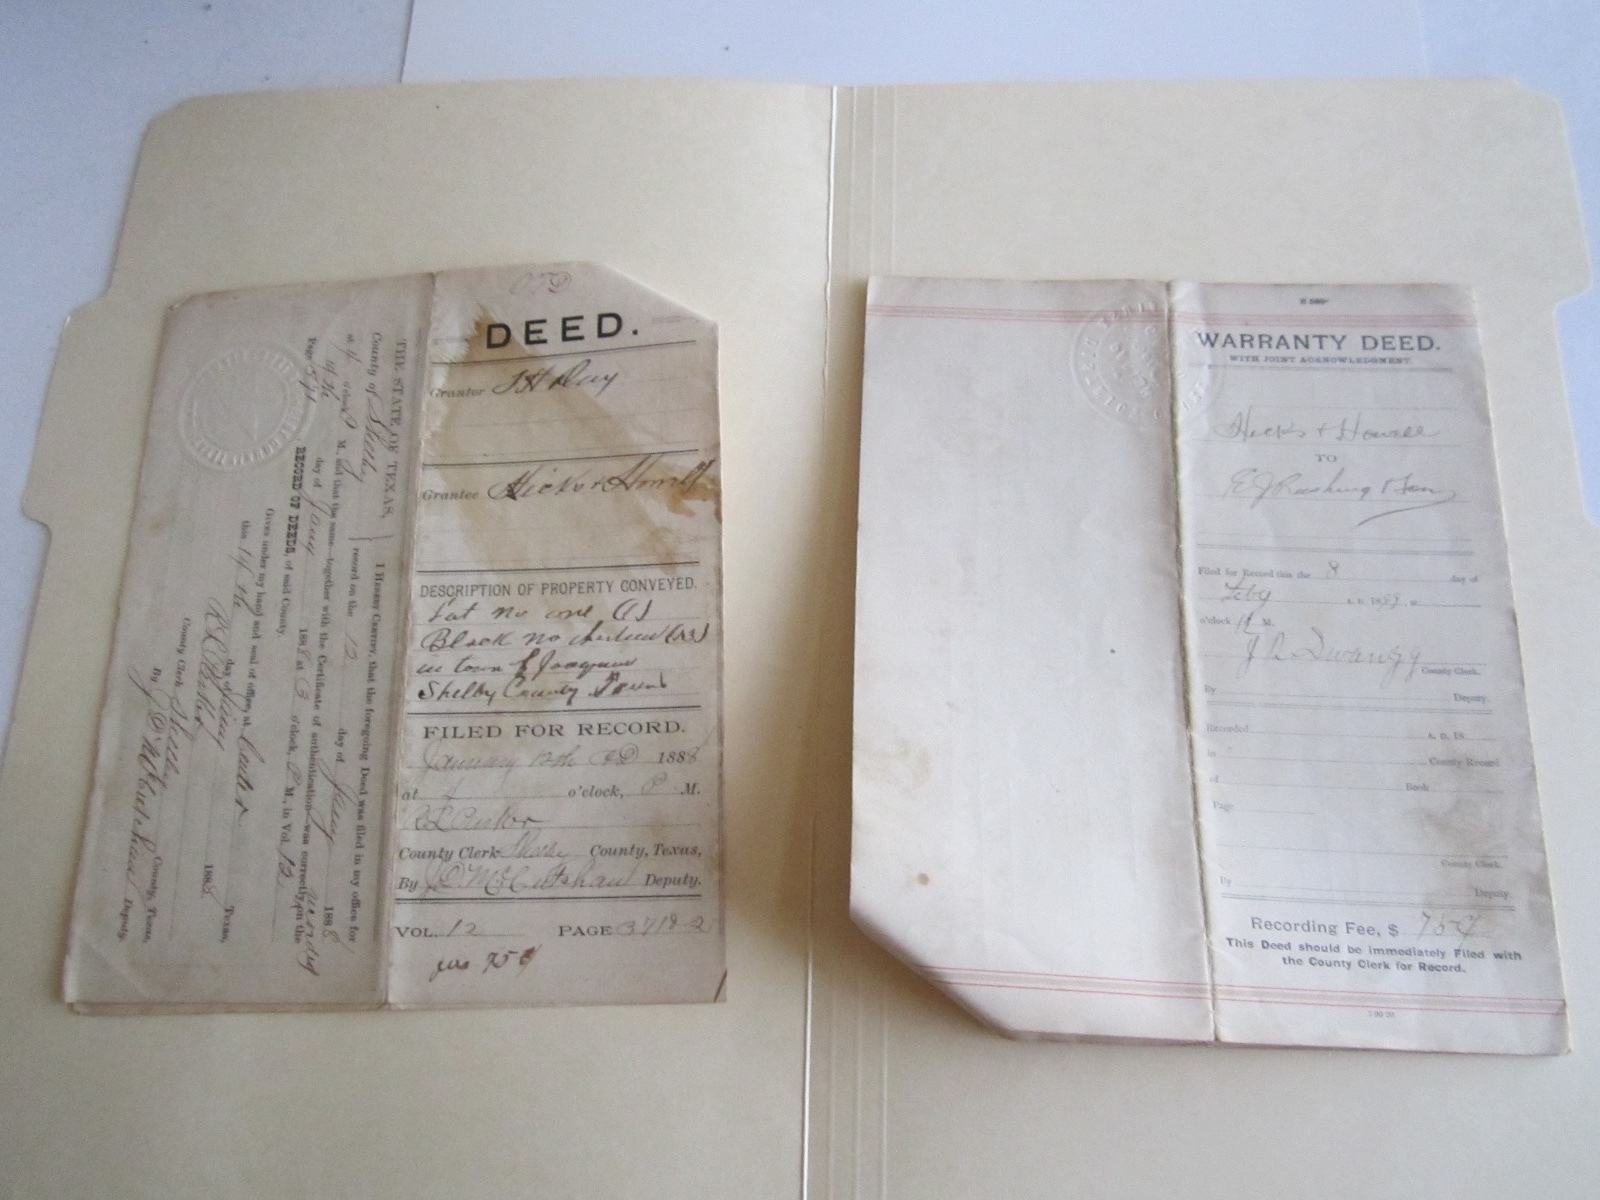 THE STATE OF TEXAS,
County of Shelby
I Hereby Certify, that the foregoing Deed was filed in my office for
record on the 12 day of Jany 1888
at 4 o'clock P M., and that the same together with the Certificate of authentication was correctly on the
14 th day of Jany 1888 at 3 o'clock, P M., in Vol. 12
Page
RECORD OF DEEDS, of said County.
Given under my hand and seal of office, at Center Texas,
this 14 th day of Jany 1888
County Clerk Shelby County, Texas,
By J D McCutshaw Deputy.
DEED.
Grantor
Grantee Hicks & Howell
DESCRIPTION OF PROPERTY CONVEYED.
Lot no one (1)
Block no (13)
in town of Joaquin
Shelby County Texas
FILED FOR RECORD.
January 12th AD 1888
at 4 o'clock, P. M.
County Clerk Shelby County, Texas,
By J D McCutshaw Deputy.
VOL. 12 PAGE
75¢
WARRANTY DEED.
WITH JOINT ACKNOWLEDGMENT.
Hicks & Howell
TO
E J Rushing & Son
Filed for Record this the 8 day of
Feby A. D. 18
o'clock M.
County Clerk.
By Deputy.
Recorded A. D. 18
in County Record
of Book
Page
County Clerk.
By Deputy.
Recording Fee, $ 75¢
This Deed should be immediately Filed with
the County Clerk for Record.